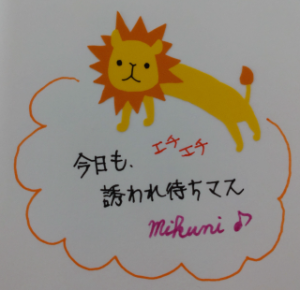 今日も、エチエチ
誘われ待ちマス
Mikuni ♪